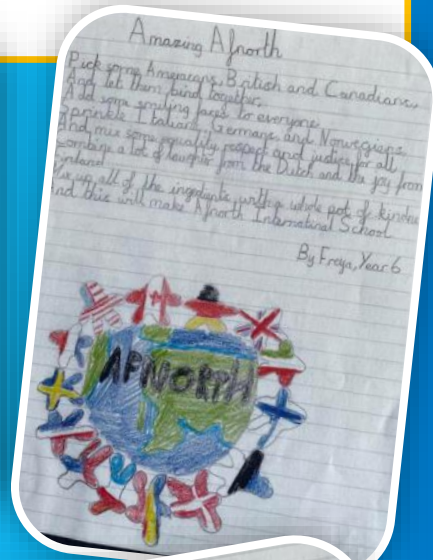 Amazing Afnorth
Pick some Americans, British and Canadians,
And let them bind together,
Add some smiling faces to everyone
Sprinkle Italians, Germans and Norwegians
And mix some equality respect and justice for all,
Combine a lot of laughs from the Dutch and the joy from
Finland
Mix up all of the ingredients with a whole pot of kindne
And this will make Afnorth International School
By Freya, Year 6
AFNORTH